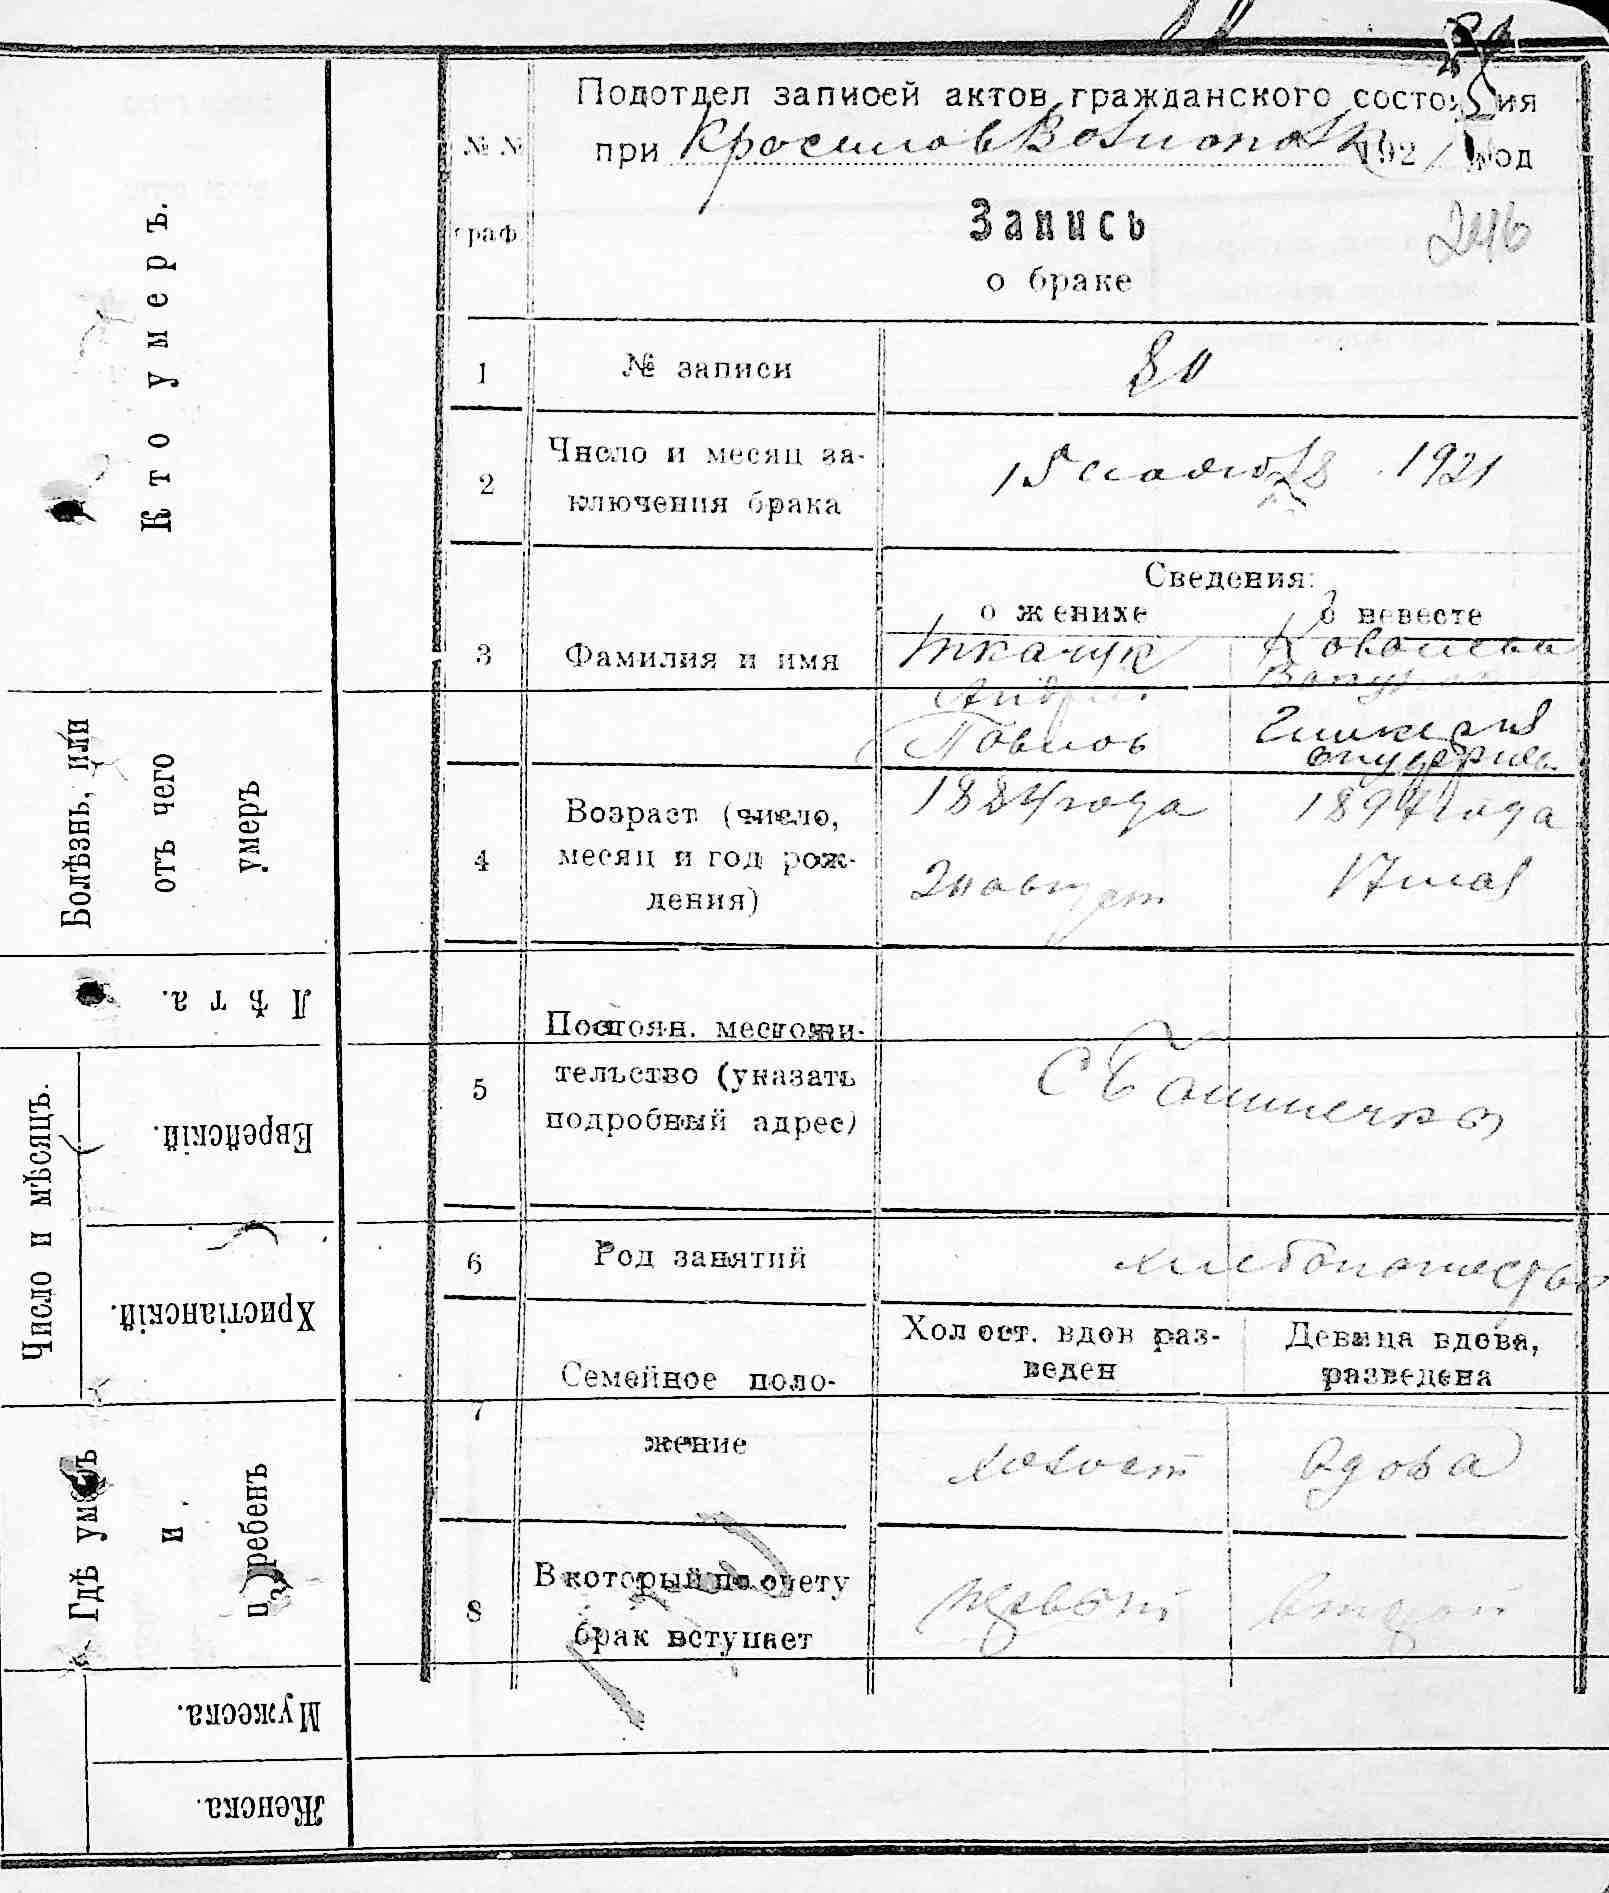 Подотдел записей актов гражданского состояния
при 1921 год
№ №
граф.
Запись
246
о браке
1
№ записи
80
2
Число и месяц за-
ключения брака
15 ноября 1921
Сведения:
о женихе
о невесте
3
Фамилия и имя
Ткачук
Андрей
Павлов
4
Возраст (число,
месяц и год рож-
дения)
1884 года
20 август
1894 года
17 мая
5
Постоян. местожи-
тельство (указать
подробный адрес)
6
Род занятий
7
Семейное поло-
жение
Холост. вдов раз-
веден
Девица вдова,
разведена
холост
вдова
8
В который по счету
брак вступает
первый
второй
Кто умеръ.
Болѣзнь, или
отъ чего
умеръ
Лѣта.
Число и мѣсяцъ.
Еврейскій.
Христіанскій.
Гдѣ умеръ
и
погребенъ
Мужеска.
Женска.